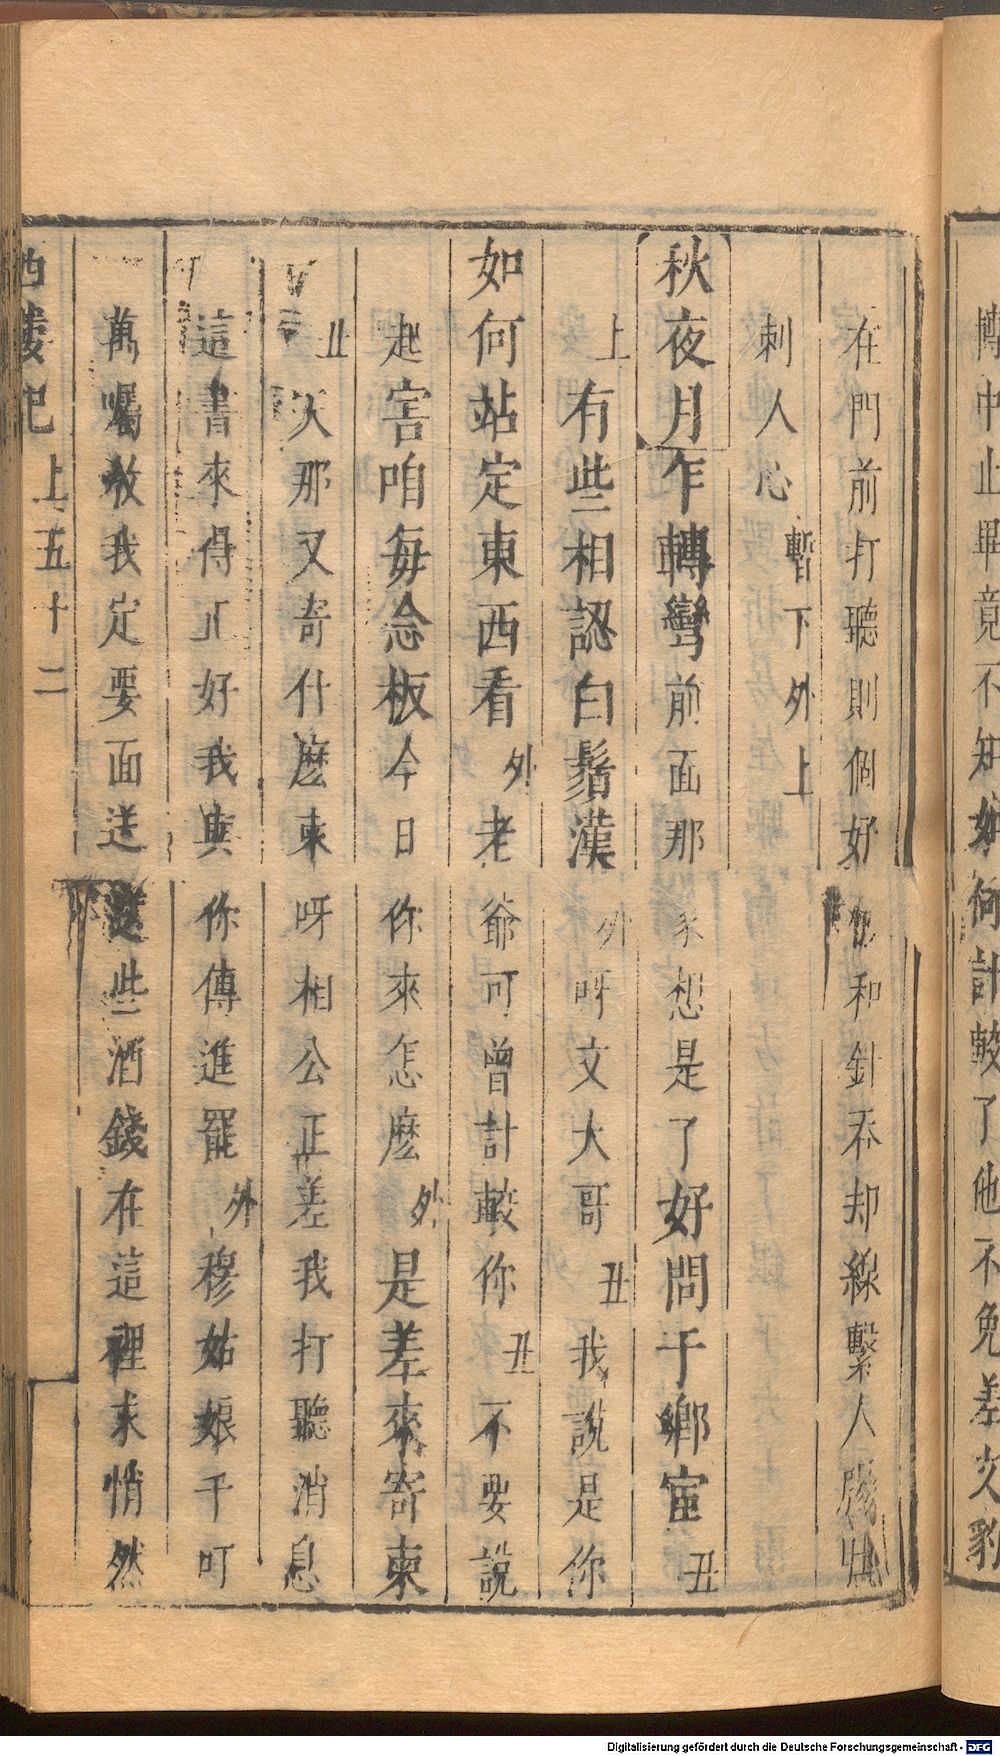 博中止畢竟不知如何計較了他不免差文豹
在門前打聽則個好似和針吞却線繫人腸肚
刺人心暫下外上
【秋夜月】乍轉彎前面那家想是了好問于鄉宦丑
上有些相認白鬍漢外呀文大哥丑我說是你
如何站定東西看外老爺可曾計較你丑不要說
起害咱每念板今日你來怎麽外是差來寄柬
丑天那又寄什麽柬呀相公正差我打聽消息
這書來得正好我與你傳進罷外穆姑娘千叮
萬囑教我定要面送送些酒錢在這裡末悄然
西樓記上五十二
Digitalisierung gefördert durch die Deutsche Forschungsgemeinschaft - DFG